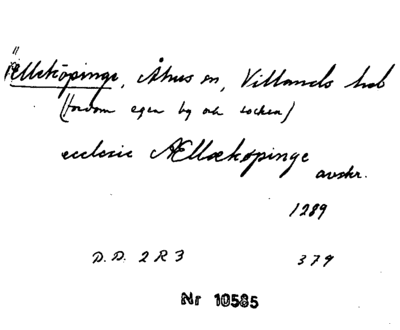 Ælleköpinge, Åhus sn, Villands hd
(fordom egen by och socken)
ecclesie Ællækøpinge
avskr.
1289
D.D. 2 R 3 379
Nr 10585